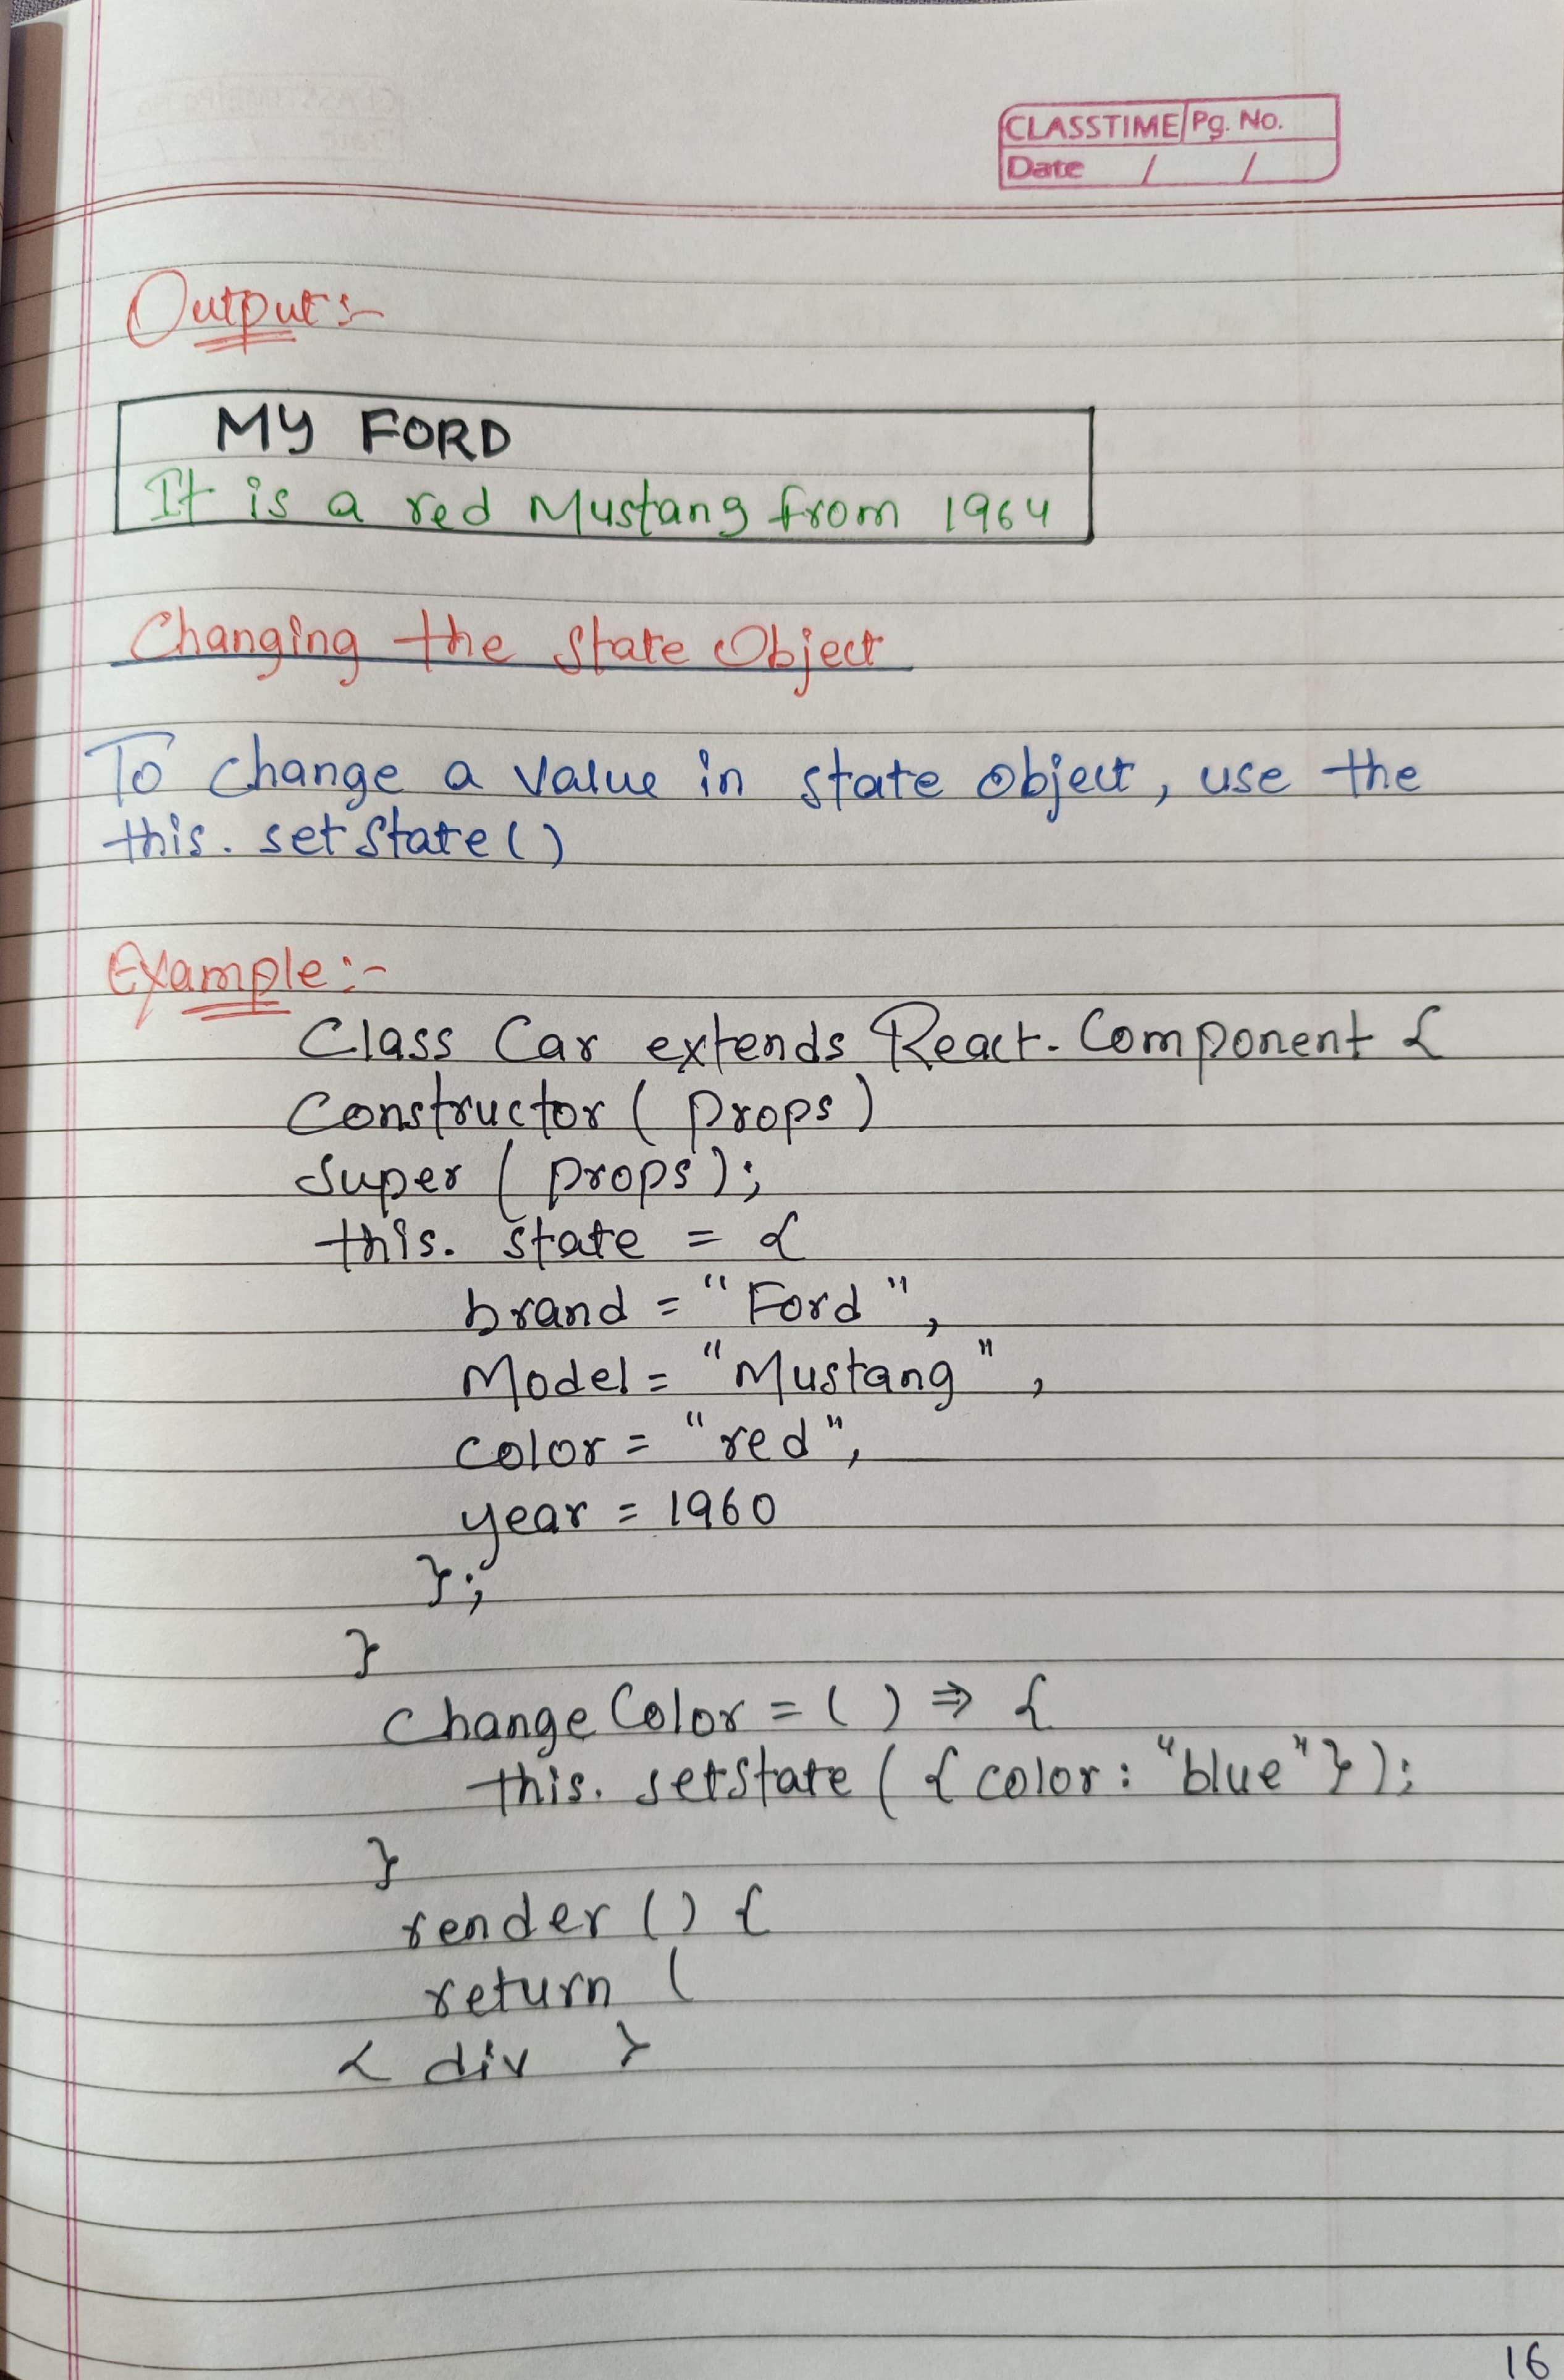 CLASSTIME Pg. No.
Date / /
Output:-
MY FORD
It is a red Mustang from 1964
Changing the State Object
To change a value in state object, use the
this. setState()
Example:-
Class Car extends React. Component {
Constructor ( props )
Super ( props );
this. state = {
brand = "Ford",
Model = "Mustang",
color = "red",
year = 1960
};
}
change Color = ( ) => {
this. setState ( { color : "blue" } );
}
render () {
return (
< div >
16